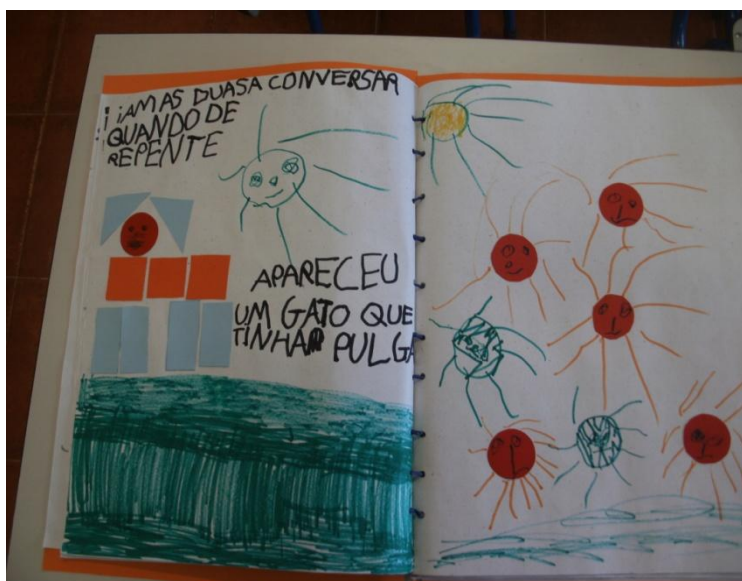 IAM AS DUASA CONVERSAR
QUANDO DE
REPENTE
APARECEU
UM GATO QUE
TINHAR PULGA